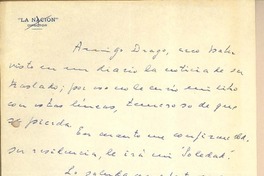 "LA NACIÓN"
Amigo Drago, creo haber
visto en un diario la noticia de su
traslado; por eso no le envío mi libro
con estas líneas, temeroso de que
se pierda.
En cuanto me confirme Ud.
su residencia, le irá mi "Soledad".
Lo saluda